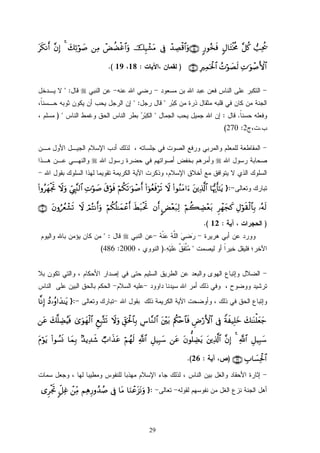 يُحِبُّ كُلَّ مُخْتَالٍ فَخُورٍ وَاقْصِدْ فِي مَشْيِكَ وَاغْضُضْ مِن صَوْتِكَ ۚ إِنَّ أَنكَرَ
الْأَصْوَاتِ لَصَوْتُ الْحَمِيرِ ( لقمان ،الآيات : 18، 19 ).
- التكبر على الناس فعن عبد الله بن مسعود – رضي الله عنه- عن النبي ﷺ قال: " لا يـدخل
الجنة من كان في قلبه مثقال ذرة من كبْر " قال رجل: " إن الرجل يحب أن يكون ثوبه حـسناً،
وفعله حسناً. قال : إن الله جميل يحب الجمال " الكِبْرُ بطر الناس الحق وغمط الناس " ( مسلم ،
ب.ت،ج2: 270)
- المقاطعة للمعلم والمربي ورفع الصوت في جلساته ، لذلك أدب الإسلام الجيـل الأول مـن
صحابة رسول الله ﷺ وأمرهم بخفض أصواتهم في حضرة رسول الله ﷺ والنهـي عـن هـذا
السلوك الذي لا يتوافق مع أخلاق الإسلام، وذكرت الآية الكريمة تقويما لهذا السلوك بقول الله –
تبارك وتعالى-:{ يَا أَيُّهَا الَّذِينَ آمَنُوا لَا تَرْفَعُوا أَصْوَاتَكُمْ فَوْقَ صَوْتِ النَّبِيِّ وَلَا تَجْهَرُوا
لَهُ بِالْقَوْلِ كَجَهْرِ بَعْضِكُمْ لِبَعْضٍ أَن تَحْبَطَ أَعْمَالُكُمْ وَأَنتُمْ لَا تَشْعُرُونَ
( الحجرات ، آية : 12 ).
وورد عن أبي هريرة – رَضيَ اللهُ عَنْهُ- عن النبي ﷺ قال : " من كان يؤمن بالله واليوم
الآخر؛ فليقل خيراً أو ليصمت " مُتَّفَقٌ عَلَيْهِ.( النووي ، 2000: 486)
- الضلال وإتباع الهوى والبعد عن الطريق السليم حتى في إصدار الأحكام ، والتي تكون بلا
ترشيد ووضوح ، وفي ذلك أمر الله سيدنا داوود –عليه السلام- الحكم بالحق البين على الناس
وإتباع الحق في ذلك ، وأوضحت الآية الكريمة ذلك بقول الله –تبارك وتعالى –:{ يَا دَاوُودُ إِنَّا
جَعَلْنَاكَ خَلِيفَةً فِي الْأَرْضِ فَاحْكُم بَيْنَ النَّاسِ بِالْحَقِّ وَلَا تَتَّبِعِ الْهَوَىٰ فَيُضِلَّكَ عَن
سَبِيلِ اللَّهِ ۚ إِنَّ الَّذِينَ يَضِلُّونَ عَن سَبِيلِ اللَّهِ لَهُمْ عَذَابٌ شَدِيدٌ بِمَا نَسُوا يَوْمَ
الْحِسَابِ (ص، آية : 26).
- إثارة الأحقاد والغل بين الناس ، لذلك جاء الإسلام مهذبا للنفوس ومطيبا لها ، وجعل سمات
أهل الجنة نزع الغل من نفوسهم لقوله–تعالى-: { وَنَزَعْنَا مَا فِي صُدُورِهِم مِّنْ غِلٍّ تَجْرِي
29